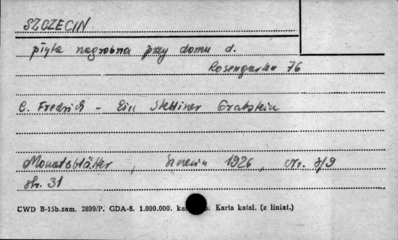 SZCZECIN
płyta nagrobna przy domu d.
Rosengarten 76
C. Fredrich - Ein Stettiner Grabstein
Monatsblätter, 1926, nr. 8/9
str. 31
CWD B-15b.zam. 2899/P. GDA-8. 1.000.000. Karta katal. (z liniat.)